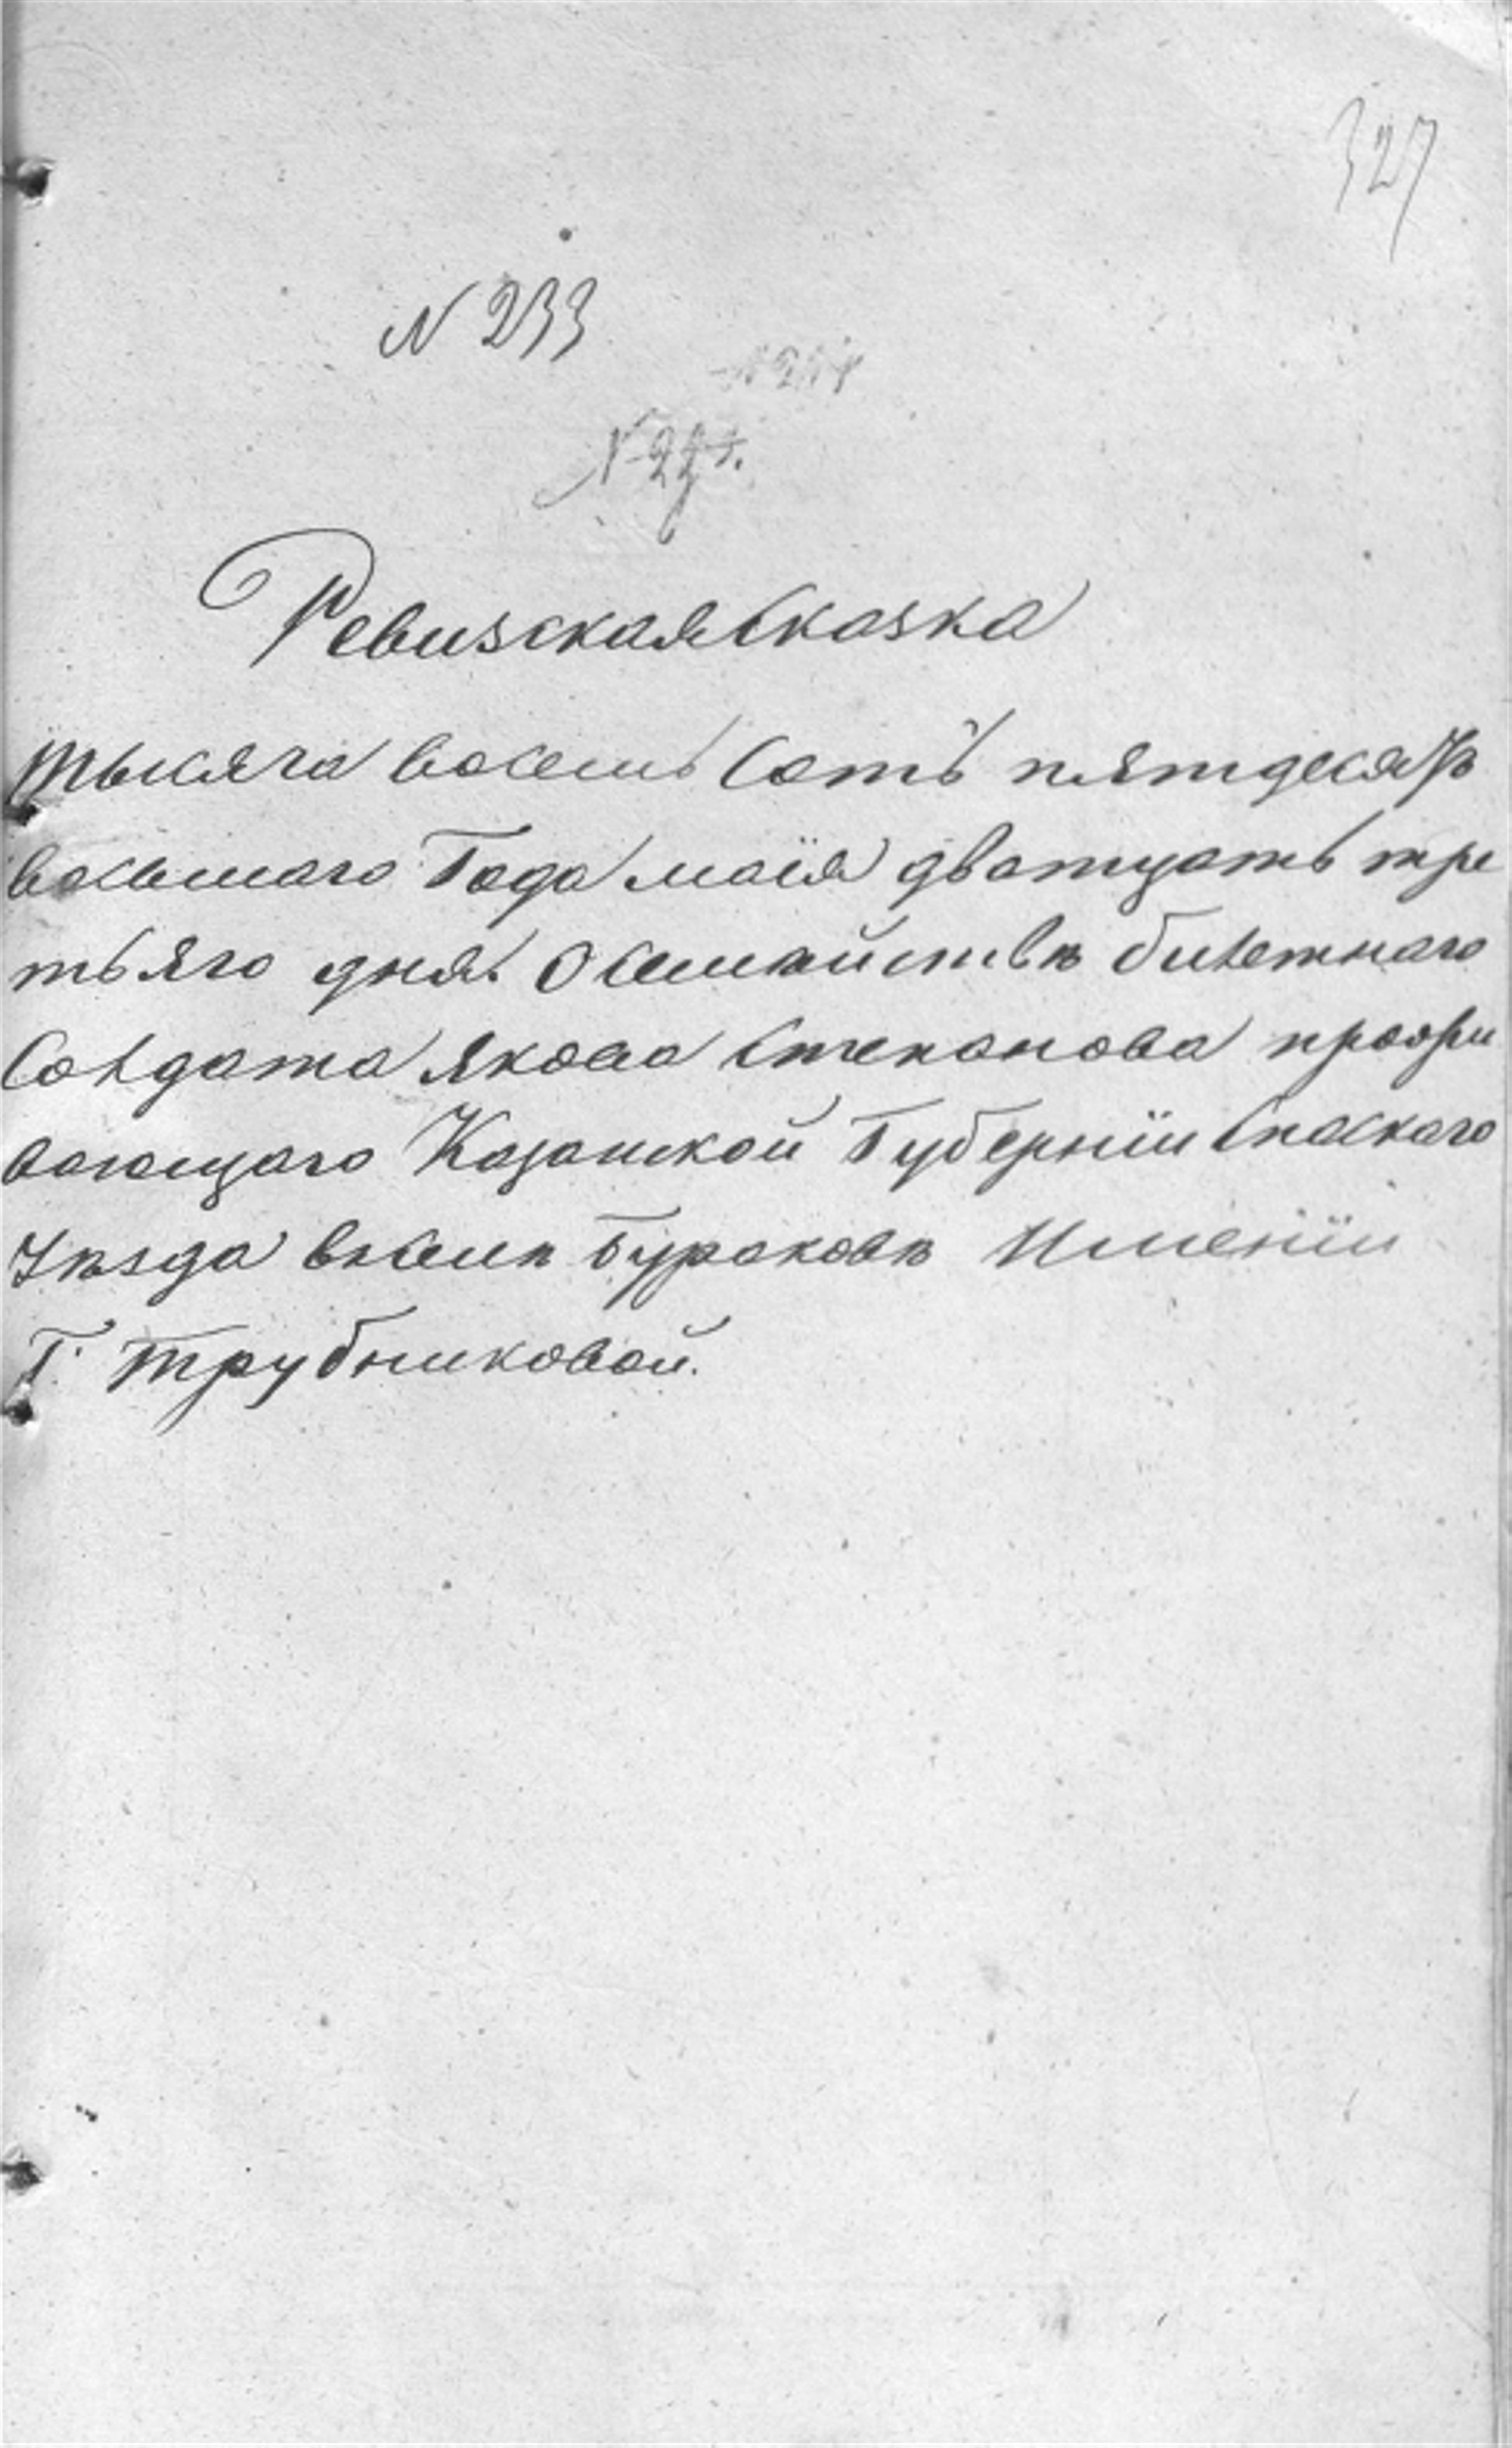 327
N 233
Ревизская Сказка
тысяча восемь Сотъ пятдесятъ
восьмаго Года маія дватцать тре
тьяго дня. О семѣйствѣ билетнаго
Солдата Якова Степанова прожи
вающаго Казанской Губерніи Спаскаго
Уѣзда вселѣ Бураковѣ Имѣніи
Г. Трубниковой.